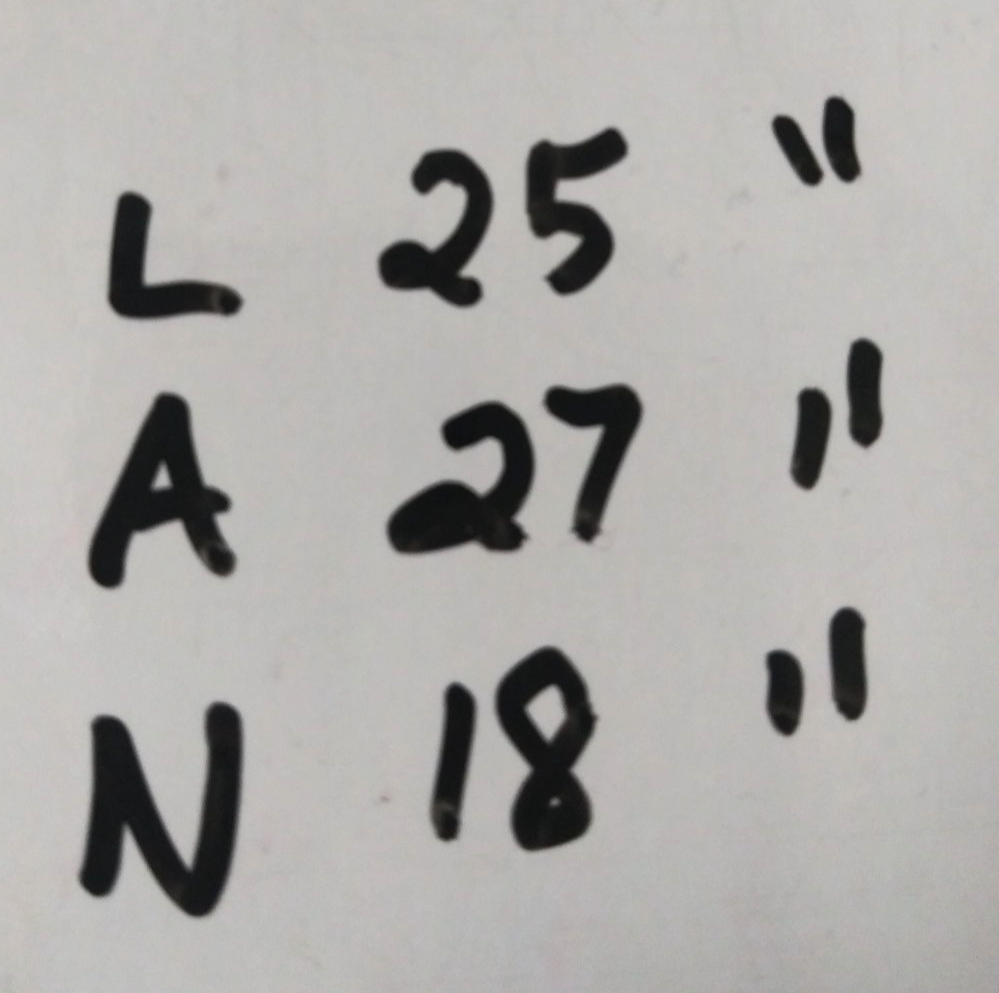 L 25 "
A 27 "
N 18 "